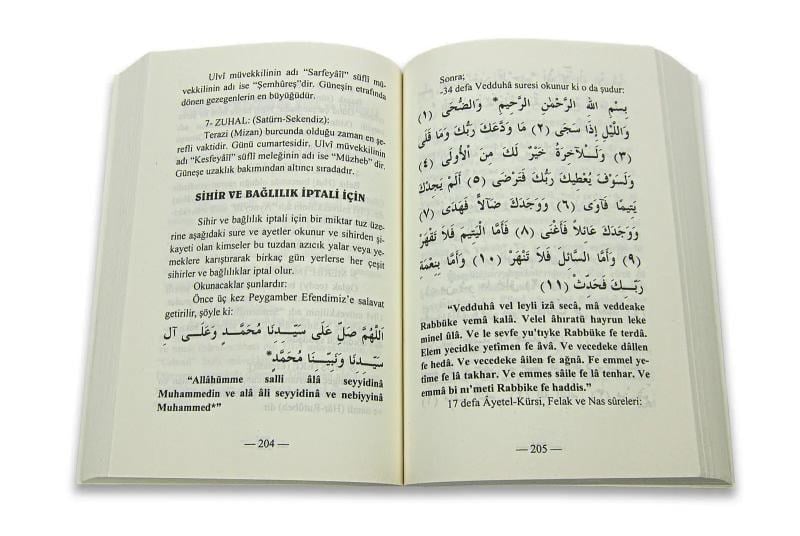 Ulvî müvekkilinin adı "Sarfeyâîl" süflî mü-
vekkilinin adı ise "Şemhûreş"dir. Güneşin etrafında
dönen gezegenlerin en büyüğüdür.
7- ZUHAL: (Satürn-Sekendiz):
Terazi (Mizan) burcunda olduğu zaman en şe-
refli vaktidir. Günü cumartesidir. Ulvî müvekkilinin
adı "Kesfeyâîl" süflî meleğinin adı ise "Müzheb" dir.
Güneşe uzaklık bakımından altıncı sıradadır.
SİHİR VE BAĞLILIK İPTALİ İÇİN
Sihir ve bağlılık iptali için bir miktar tuz üze-
rine aşağıdaki sure ve ayetler okunur ve sihirden şi-
kayeti olan kimseler bu tuzdan azıcık yalar veya ye-
meklere karıştırarak birkaç gün yerlerse her çeşit
sihirler ve bağlılıklar iptal olur.
Okunacaklar şunlardır:
Önce üç kez Peygamber Efendimiz'e salavat
getirilir, şöyle ki:
اَللّٰهُمَّ صَلِّ عَلَى سَيِّدِنَا مُحَمَّدٍ وَعَلَى آلِ
سَيِّدِنَا وَنَبِيِّنَا مُحَمَّدٍ*
"Allâhümme salli âlâ seyyidinâ
Muhammedin ve alâ âli seyyidinâ ve nebiyyinâ
Muhammed*"
— 204 —
Sonra;
-34 defa Vedduhâ suresi okunur ki o da şudur:
بِسْمِ اللهِ الرَّحْمٰنِ الرَّحِيمِ* وَالضُّحَى (١)
وَاللَّيْلِ إِذَا سَجَى (٢) مَا وَدَّعَكَ رَبُّكَ وَمَا قَلَى
(٣) وَلَلْآخِرَةُ خَيْرٌ لَكَ مِنَ الْأُولَى (٤)
وَلَسَوْفَ يُعْطِيكَ رَبُّكَ فَتَرْضَى (٥) أَلَمْ يَجِدْكَ
يَتِيمًا فَآوَى (٦) وَوَجَدَكَ ضَالًّا فَهَدَى (٧)
وَوَجَدَكَ عَائِلًا فَأَغْنَى (٨) فَأَمَّا الْيَتِيمَ فَلَا تَقْهَرْ
(٩) وَأَمَّا السَّائِلَ فَلَا تَنْهَرْ (١٠) وَأَمَّا بِنِعْمَةِ
رَبِّكَ فَحَدِّثْ (١١)
"Vedduhâ vel leyli izâ secâ, mâ veddeake
Rabbüke vemâ kalâ. Velel âhiratü hayrun leke
minel ûlâ. Ve le sevfe yu'tıyke Rabbüke fe terdâ.
Elem yecidke yetîmen fe âvâ. Ve vecedeke dâllen
fe hedâ. Ve vecedeke âilen fe ağnâ. Fe emmel ye-
tîme fe lâ takhar. Ve emmes sâile fe lâ tenhar. Ve
emmâ bi nı'meti Rabbike fe haddis."
17 defa Âyetel-Kürsi, Felak ve Nas sûreleri:
— 205 —